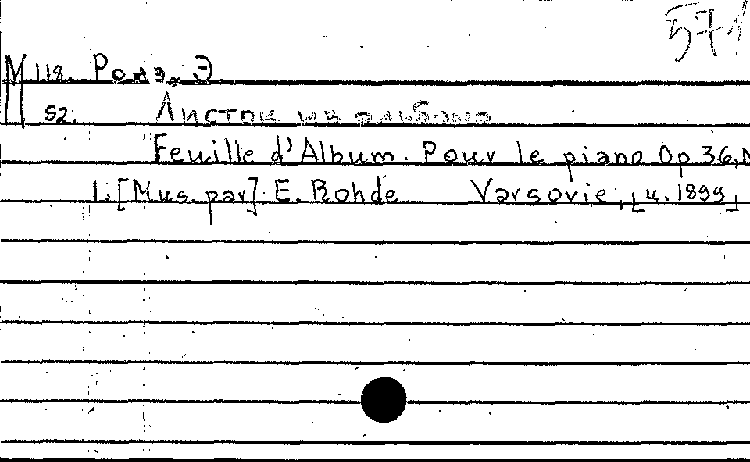 571
М 118. Роде, Э
52. Листок из альбома
Feuille d'Album. Pour le piano Op 36, N
1. [Mus. par]. E. Rohde Varsovie, [ц. 1899]